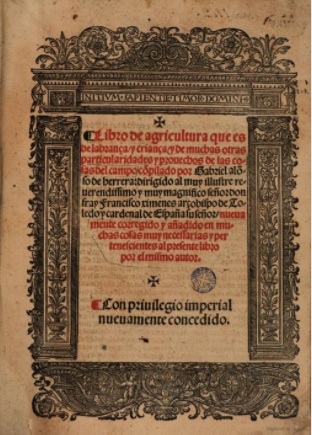 INITIVM SAPIENTIE TIMOR DOMINI
Libro de agricultura que es
de labrança/ y criança/ y de muchas otras
particularidades y prouechos de las co
sas del campo: cõpilado por Gabriel alõ
so de herrera: dirigido al muy illustre re
uerendissimo y muy magnifico señor don
fray Francisco ximenes arçobispo de To
ledo y cardenal de España su señor/ nueua
mente corregido y añadido en mu
chas cosas muy necessarias y per
tenescientes al presente libro
por el mismo autor.
Con priuilegio imperial
nueuamente concedido.